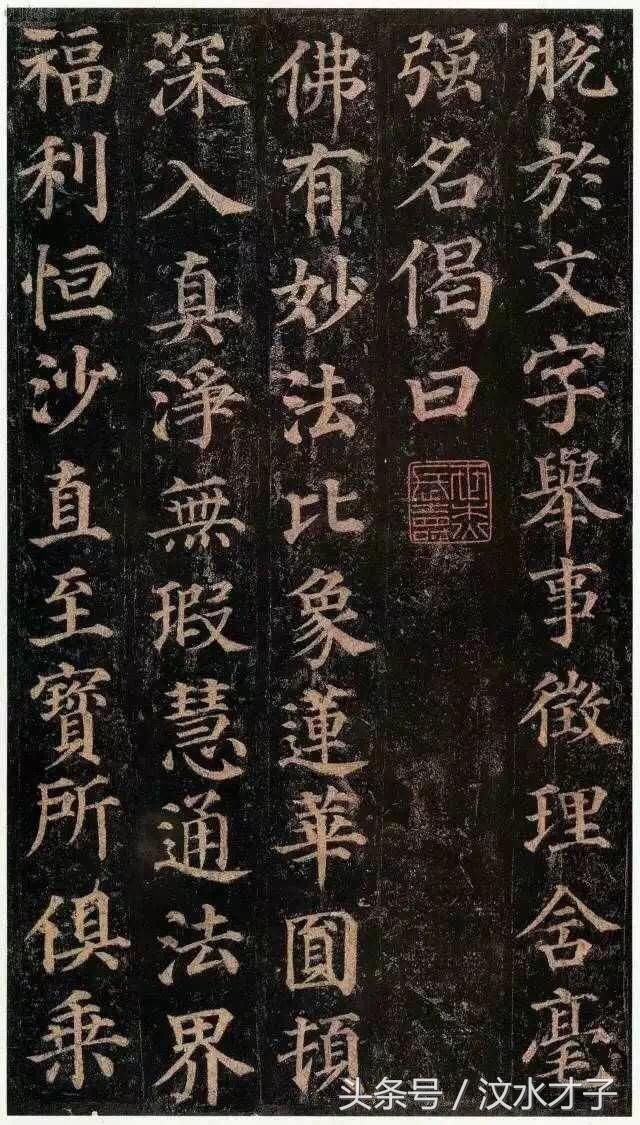 脫於文字舉事徵理含毫
强名偈曰
佛有妙法比象蓮華圓頓
深入真淨無瑕慧通法界
福利恒沙直至寶所俱乗
头条号 / 汶水才子